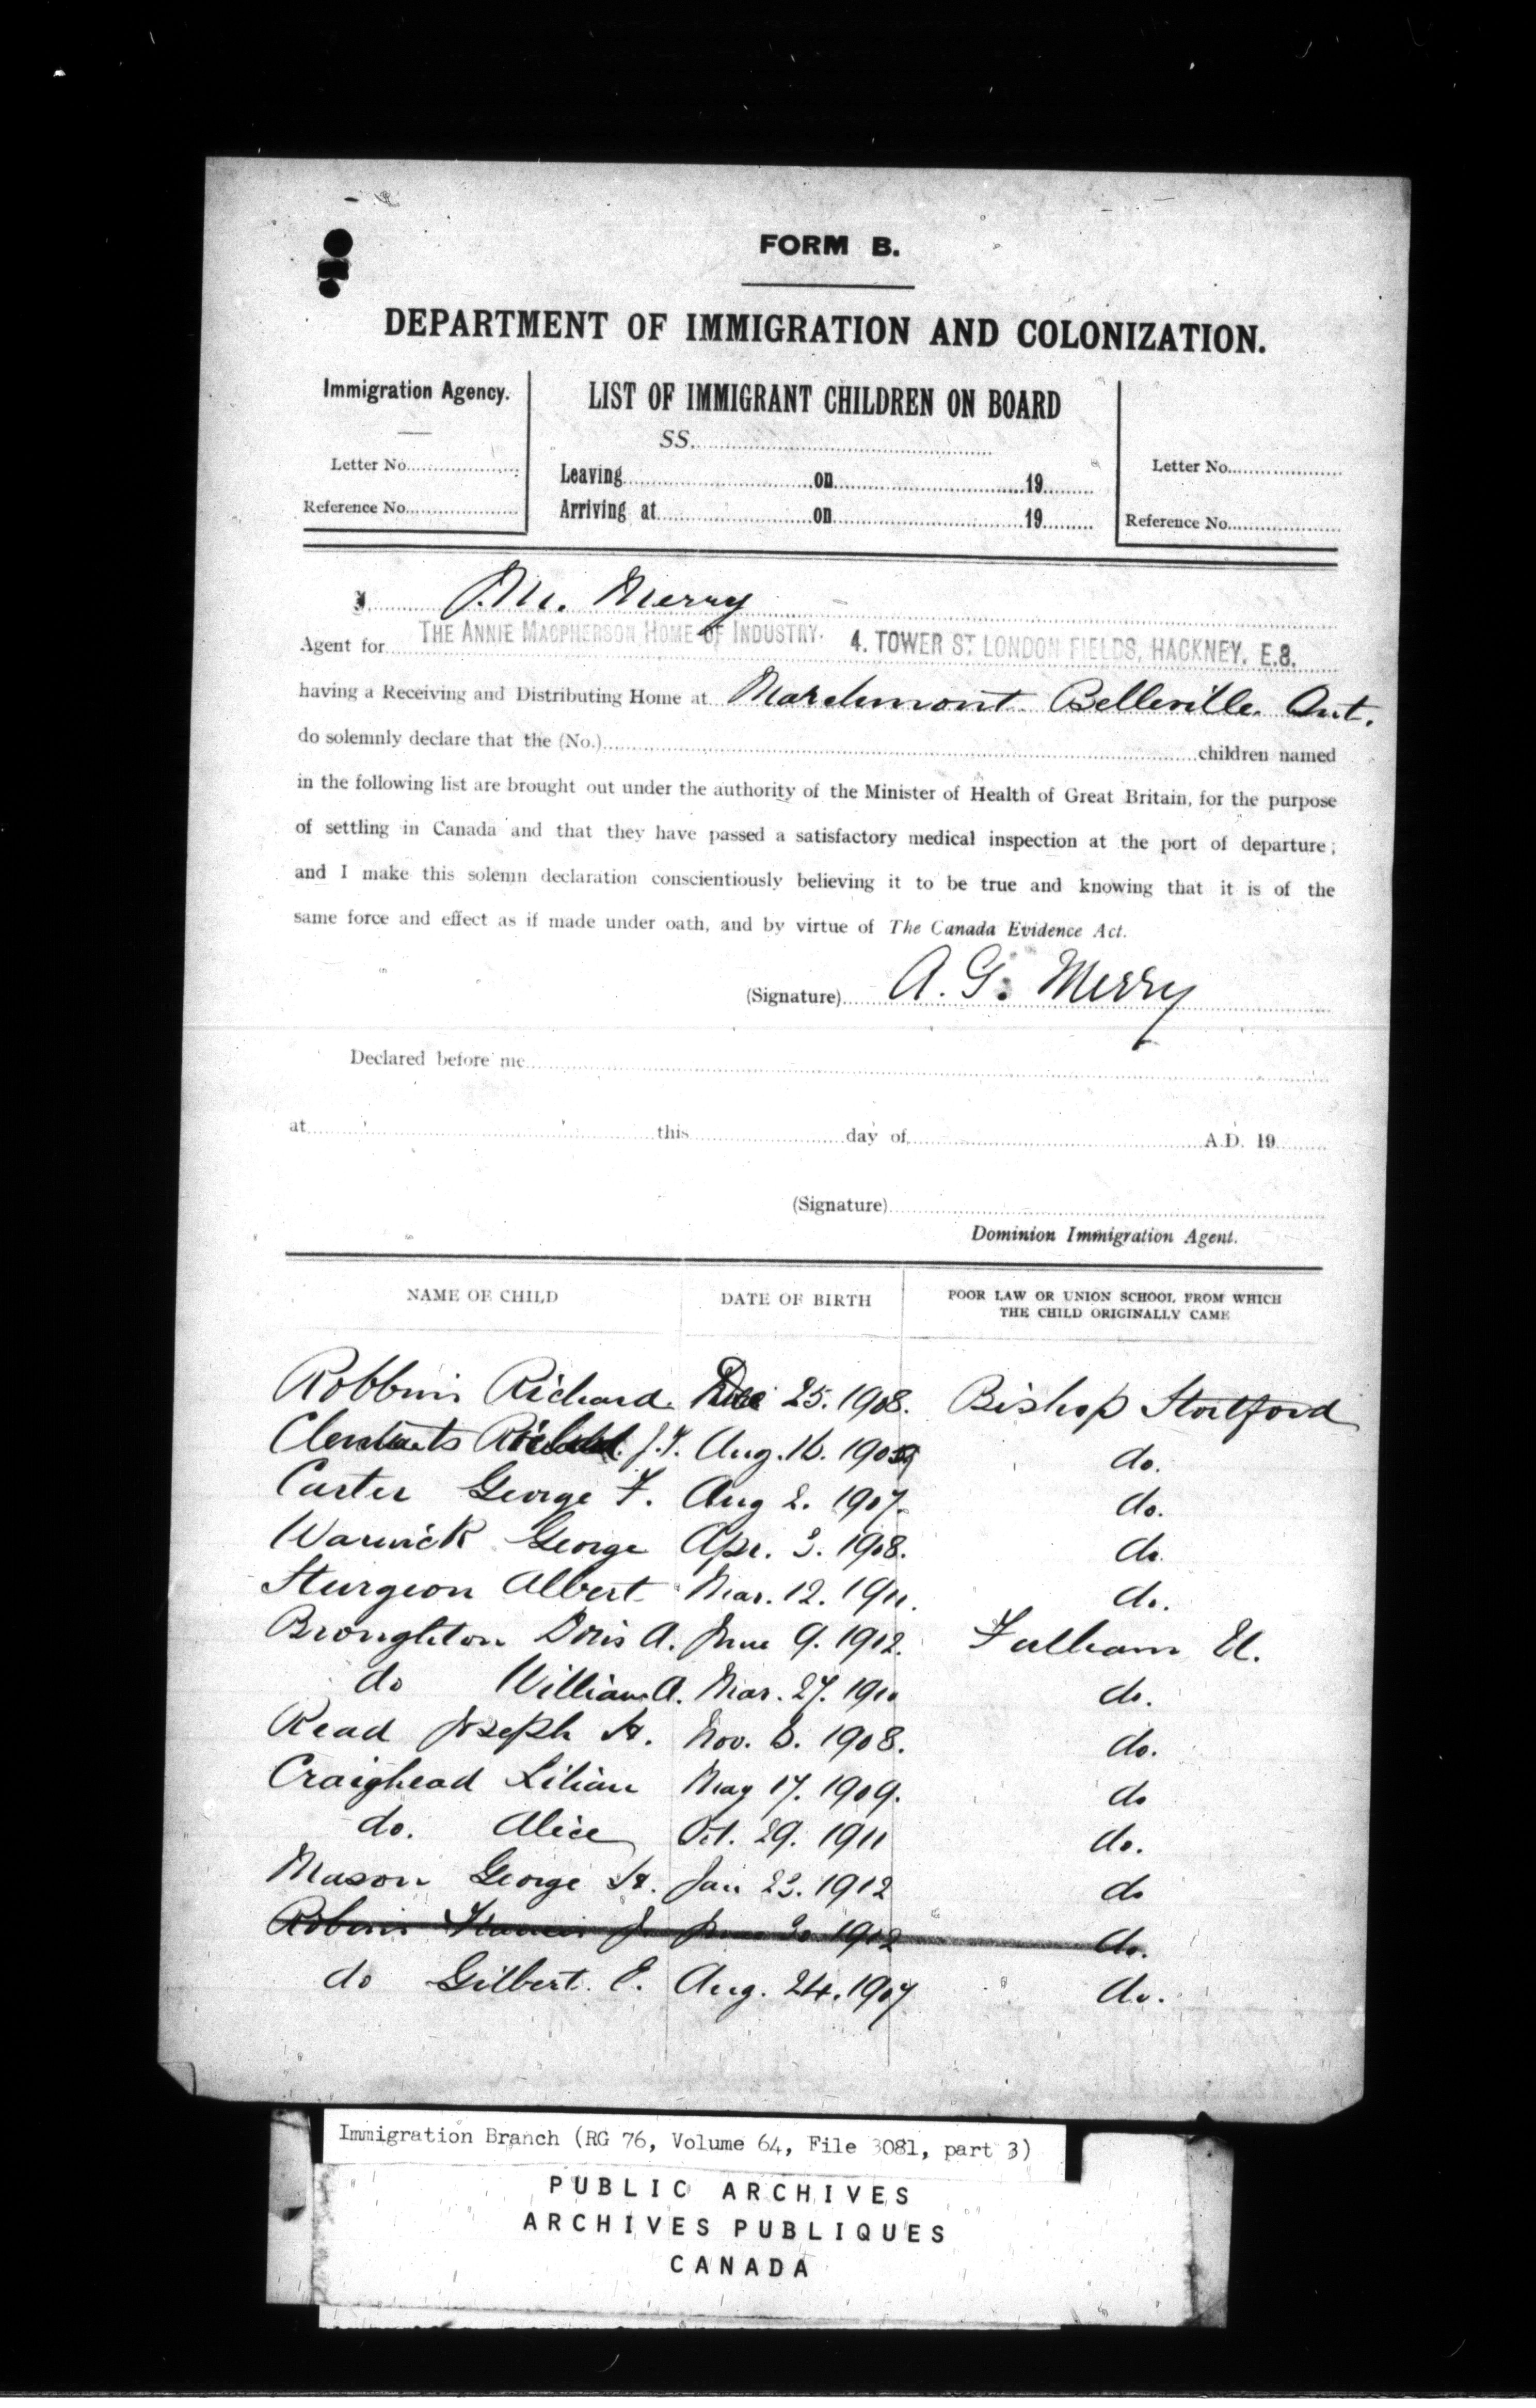 FORM B.
DEPARTMENT OF IMMIGRATION AND COLONIZATION.
Immigration Agency.
Letter No.
Reference No.
LIST OF IMMIGRANT CHILDREN ON BOARD
SS.
Leaving on 19
Arriving at on 19
Letter No.
Reference No.
J. M. Merry
Agent for THE ANNIE MACPHERSON HOME OF INDUSTRY. 4. TOWER ST. LONDON FIELDS, HACKNEY. E.8.
having a Receiving and Distributing Home at Marchmont Belleville. Ont.
do solemnly declare that the (No.) children named
in the following list are brought out under the authority of the Minister of Health of Great Britain, for the purpose
of settling in Canada and that they have passed a satisfactory medical inspection at the port of departure;
and I make this solemn declaration conscientiously believing it to be true and knowing that it is of the
same force and effect as if made under oath, and by virtue of The Canada Evidence Act.
(Signature) A. G. Merry
Declared before me
at this day of A.D. 19
(Signature)
Dominion Immigration Agent.
NAME OF CHILD DATE OF BIRTH POOR LAW OR UNION SCHOOL FROM WHICH THE CHILD ORIGINALLY CAME
Robbins Richard Dec 25. 1908. Bishop Stortford
Clements J. F. Aug. 16. do.
Carter George F. Aug 2. 1907. do.
Warwick George Apr. 3. 1908. do.
Sturgeon Albert Mar. 12. 1911. do.
Broughton Doris A. June 9. 1912. Fulham U.
do William A. Mar. 27. 1910 do.
Read Joseph H. Nov. 3. 1908. do.
Craighead Lilian May 17. 1909. do
do. Alice Oct. 29. 1911 do.
Mason George H. Jan 23. 1912 do
Robins Francis J June 30 1912 do.
do Gilbert E. Aug. 24. 1907 do.
Immigration Branch (RG 76, Volume 64, File 3081, part 3)
PUBLIC ARCHIVES
ARCHIVES PUBLIQUES
CANADA